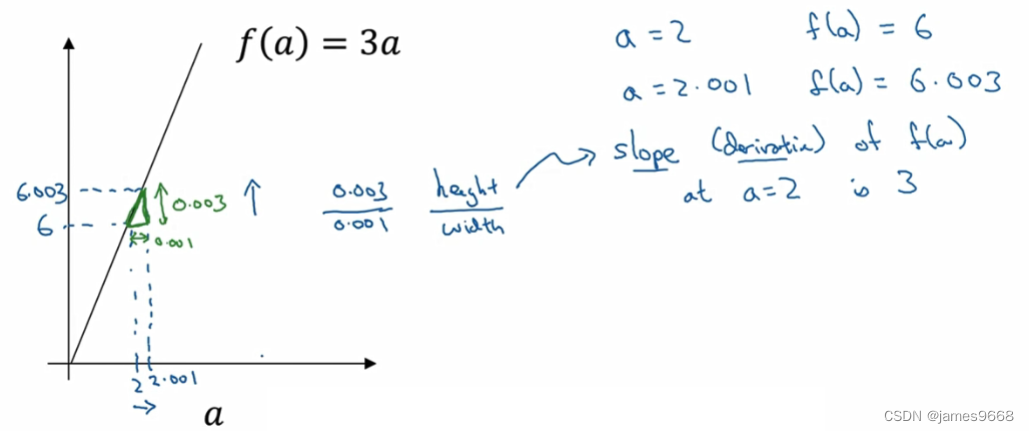 f(a) = 3a
a = 2 f(a) = 6
a = 2.001 f(a) = 6.003
slope (derivative) of f(a)
at a=2 is 3
6.003
6
0.003
0.001
0.003 height
0.001 width
2 2.001
a
CSDN @james9668